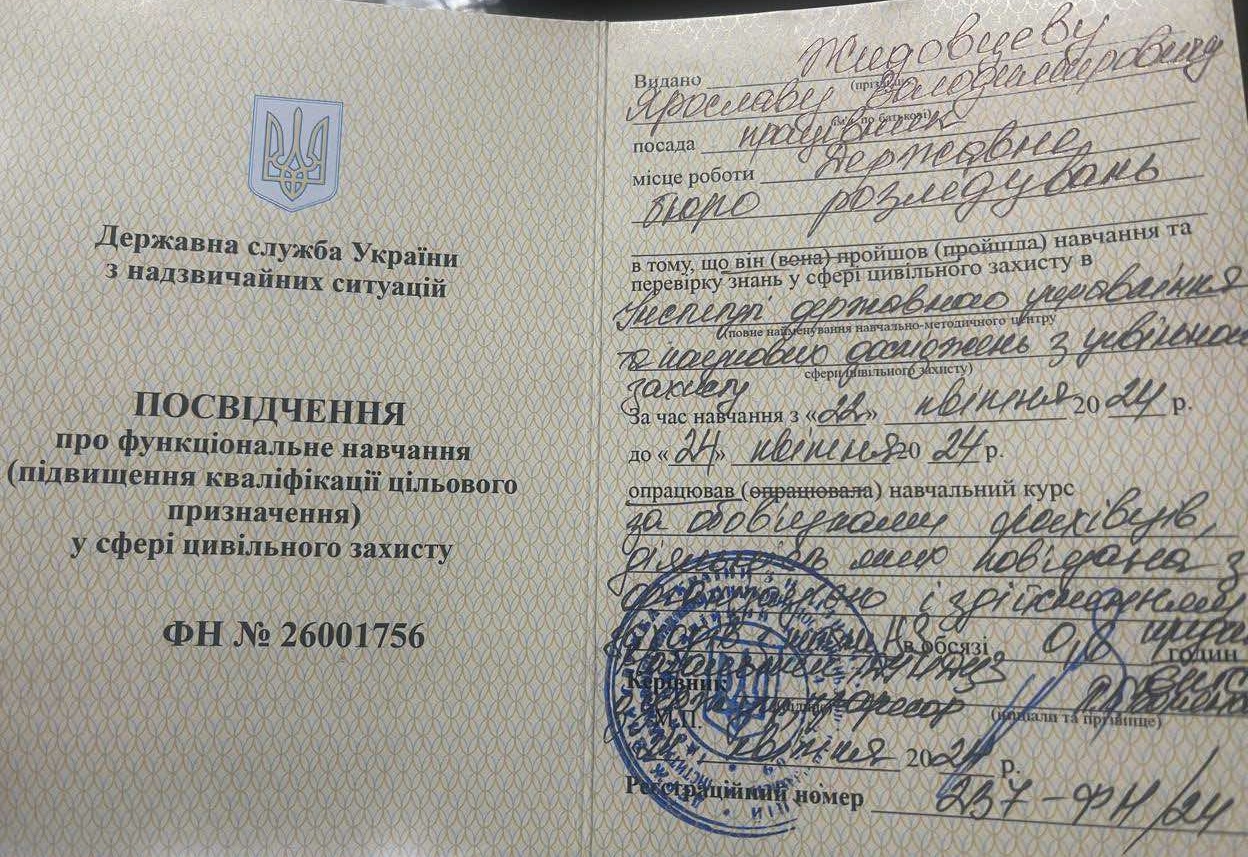 Державна служба України
з надзвичайних ситуацій
ПОСВІДЧЕННЯ
про функціональне навчання
(підвищення кваліфікації цільового
призначення)
у сфері цивільного захисту
ФН № 26001756
Видано Жидовцеву
Ярославу Володимировичу
посада працівник
місце роботи Державне
бюро розслідувань
в тому, що він (вона) пройшов (пройшла) навчання та
перевірку знань у сфері цивільного захисту в
Інституті державного управління
(повне найменування навчально-методичного центру
та наукових досліджень з цивільного
сфери цивільного захисту)
захисту
За час навчання з «22» квітня 20 24 р.
до «24» квітня 20 24 р.
опрацював (опрацювала) навчальний курс
за фахівців,
діяльність яких пов'язана з
і здійсненням
заходів з питань ЦЗ в обсязі годин
Керівник
професор (ініціали та прізвище)
М.П.
24 квітня 20 24 р.
Реєстраційний номер 237-ФН/24